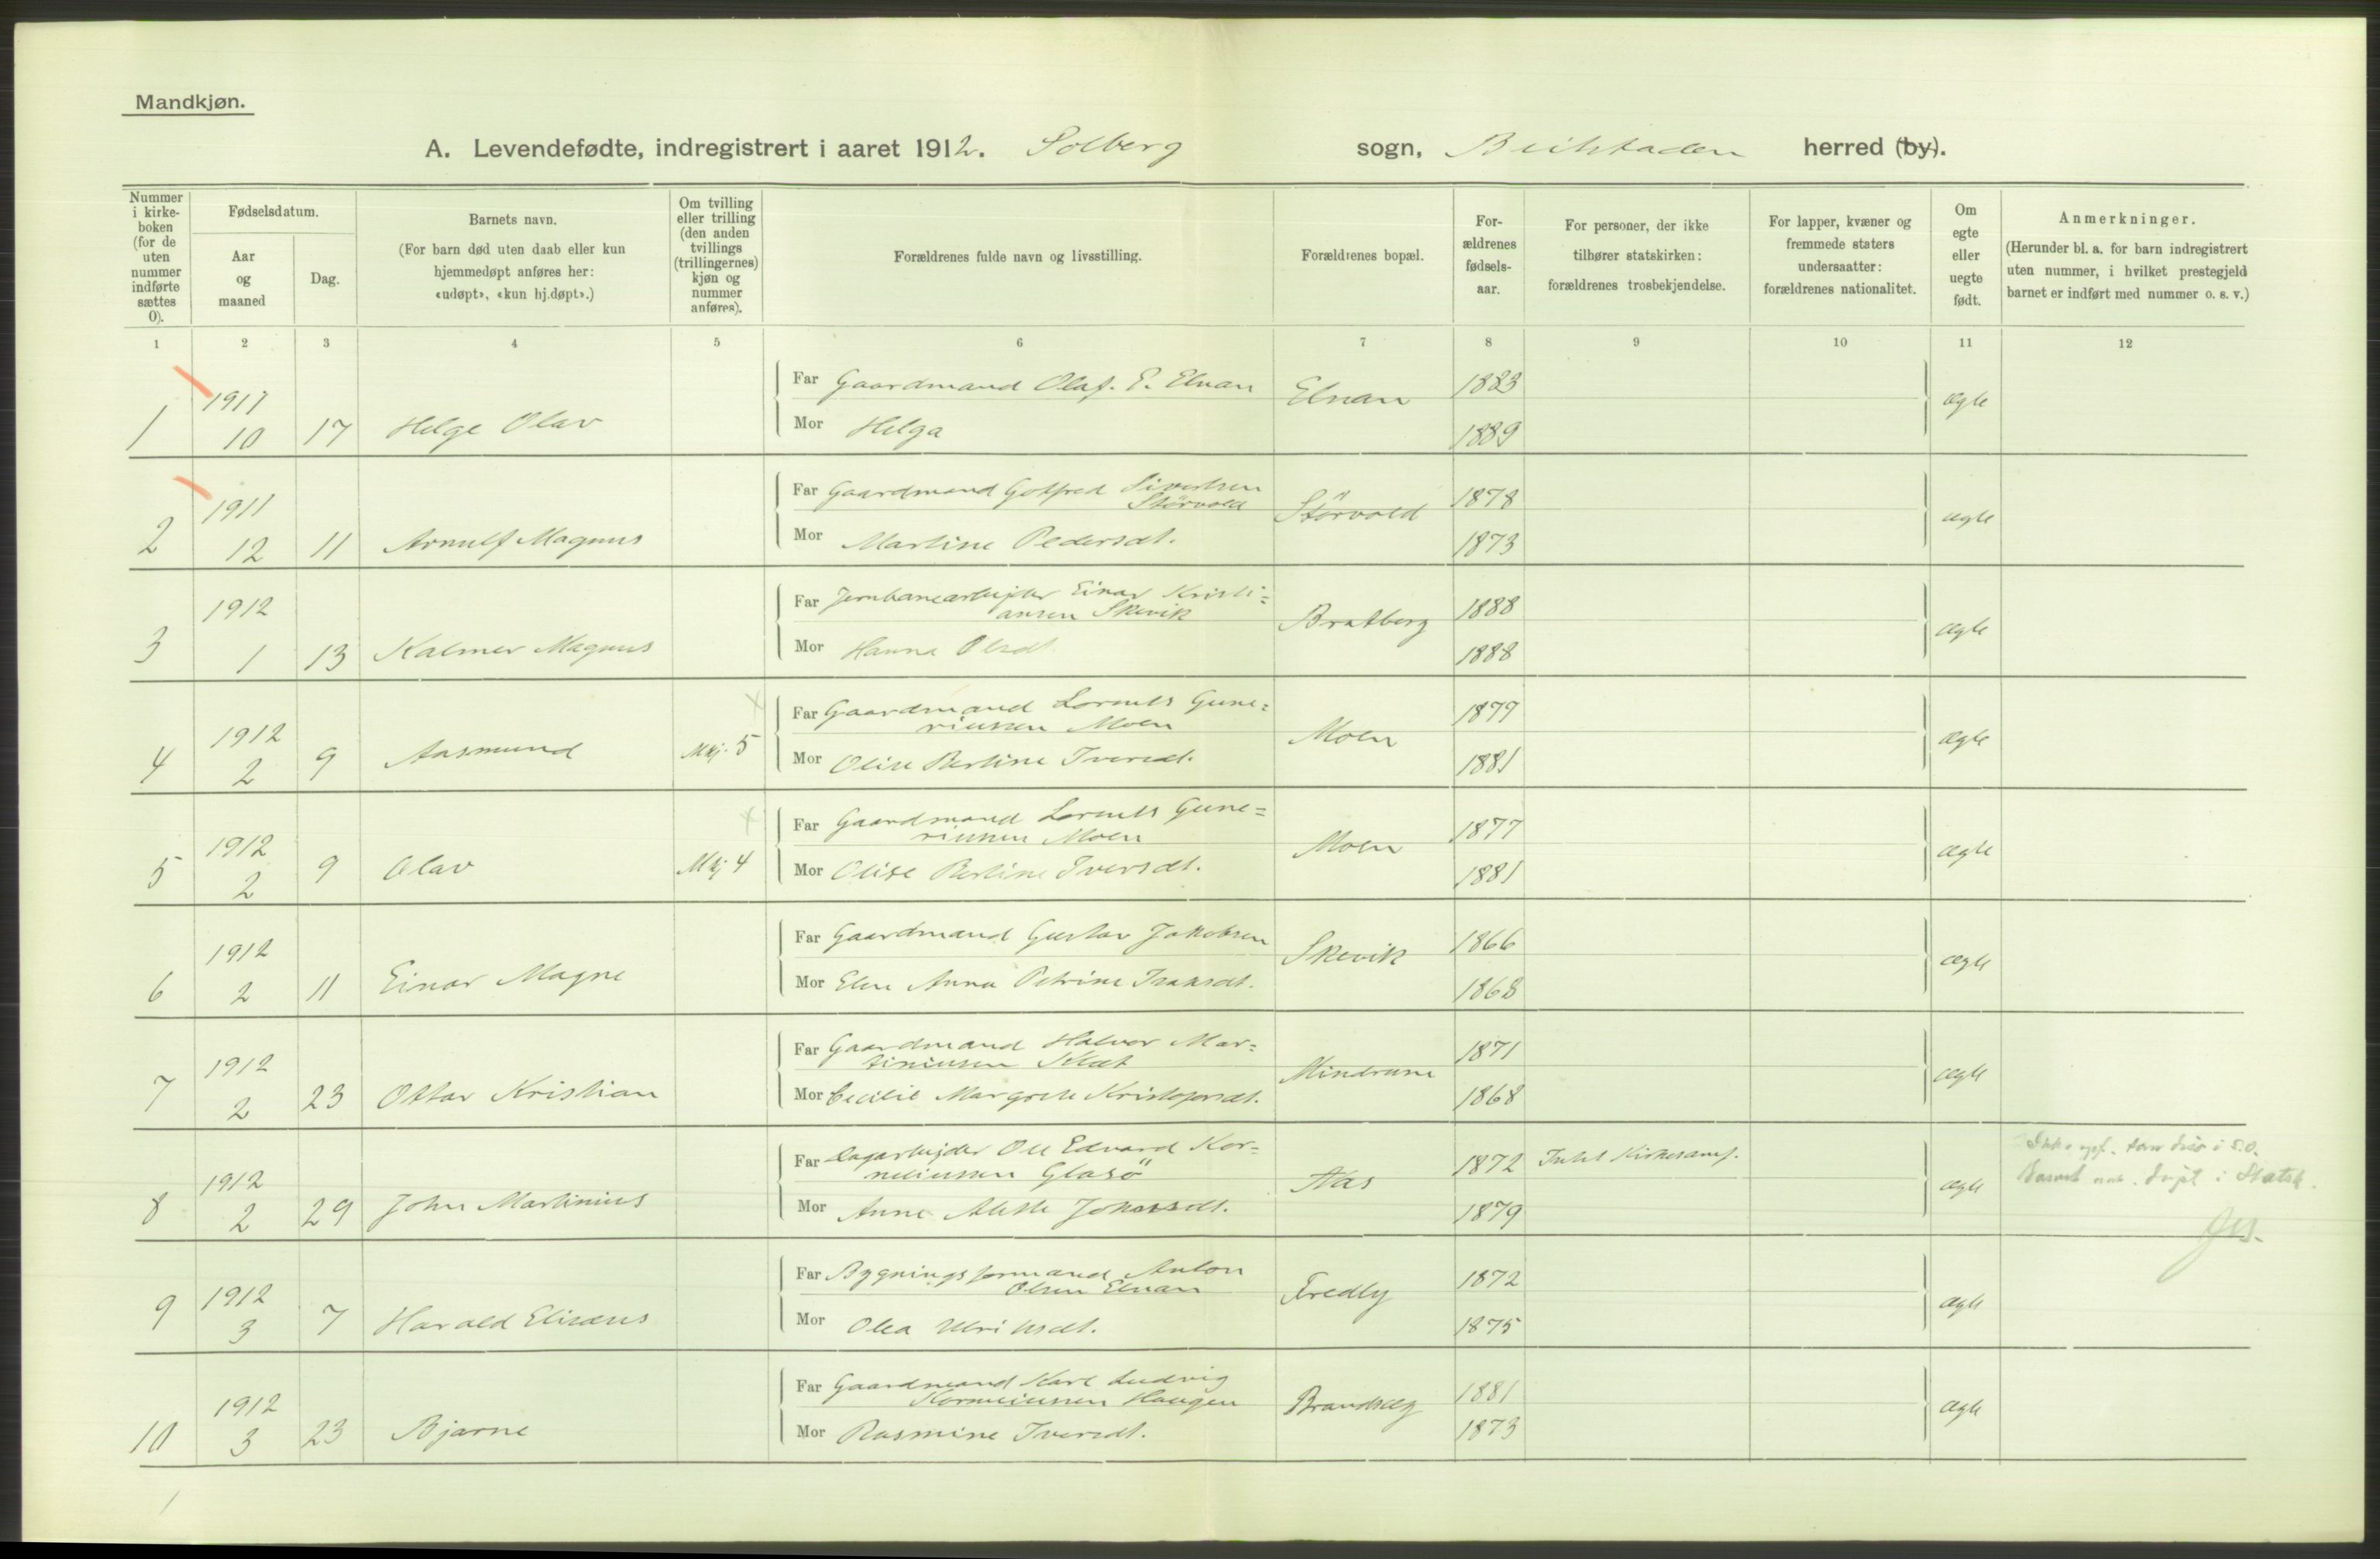 Mandkjøn.
A. Levendefødte, indregistrert i aaret 1912. Solberg sogn, Beitstaden herred (by).
Nummer i kirke- boken (for de uten nummer indførte sættes 0).
Fødselsdatum.
Aar og maaned
Dag.
Barnets navn.
(For barn død uten daab eller kun hjemmedøpt anføres her: «udøpt», «kun hj.døpt».)
Om tvilling eller trilling (den anden tvillings (trillingernes) kjøn og nummer anføres).
Forældrenes fulde navn og livsstilling.
Forældrenes bopæl.
For- ældrenes fødsels- aar.
For personer, der ikke tilhører statskirken: forældrenes trosbekjendelse.
For lapper, kvæner og fremmede staters undersaatter: forældrenes nationalitet.
Om egte eller uegte født.
Anmerkninger.
(Herunder bl. a. for barn indregistrert uten nummer, i hvilket prestegjeld barnet er indført med nummer o. s. v.)
1 2 3 4 5 6 7 8 9 10 11 12
Far Gaardmand Olaf. P. Elnan Elnan 1883
1 1911 10 17 Helge Olav ægte
Mor Helga 1889
Far Gaardmand Gotfred Sivertsen
Störvold Störvold 1878
2 1911 12 11 Arnulf Magnus ægte
Mor Martine Pedersdt. 1873
Far Jernbanearbejder Einar Kristi=
ansen Skevik Bratberg 1888
3 1912 1 13 Kalmer Magnus ægte
Mor Hanna Olsdt. 1888
Far Gaardmand Lornts Gune=
riussen Moen Moen 1877
4 1912 2 9 Aasmund Mkj. 5 ægte
Mor Olise Bertine Iversdt. 1881
Far Gaardmand Lornts Gune=
riussen Moen Moen 1877
5 1912 2 9 Olav Mkj 4 ægte
Mor Olise Bertine Iversdt. 1881
Far Gaardmand Gustav Jakobsen Skevik 1866
6 1912 2 11 Einar Magne ægte
Mor Elen Anna Petrine Isaksdt. 1868
Far Gaardmand Halvor Mar=
tiniusen Klæt Mindrum 1871
7 1912 2 23 Ottar Kristian ægte
Mor Cecilie Margrete Kristofersdt. 1868
Far Dagarbejder Ole Edvard Kor=
neliussen Glasö Aas 1872 Intet Kirkesamf.
8 1912 2 29 John Martinius ægte
Mor Anne Mette Johansdt. 1879
Barnet i Statsk.
Far Bygningsformand Anton
Olsen Elnan Fredly 1872
9 1912 3 7 Harald Elisæus ægte
Mor Olea Ulriksdt. 1875
Far Gaardmand Karl Ludvig
Korneliussen Haugen Brandseg 1881
10 1912 3 23 Bjarne ægte
Mor Rasmine Iversdt. 1873